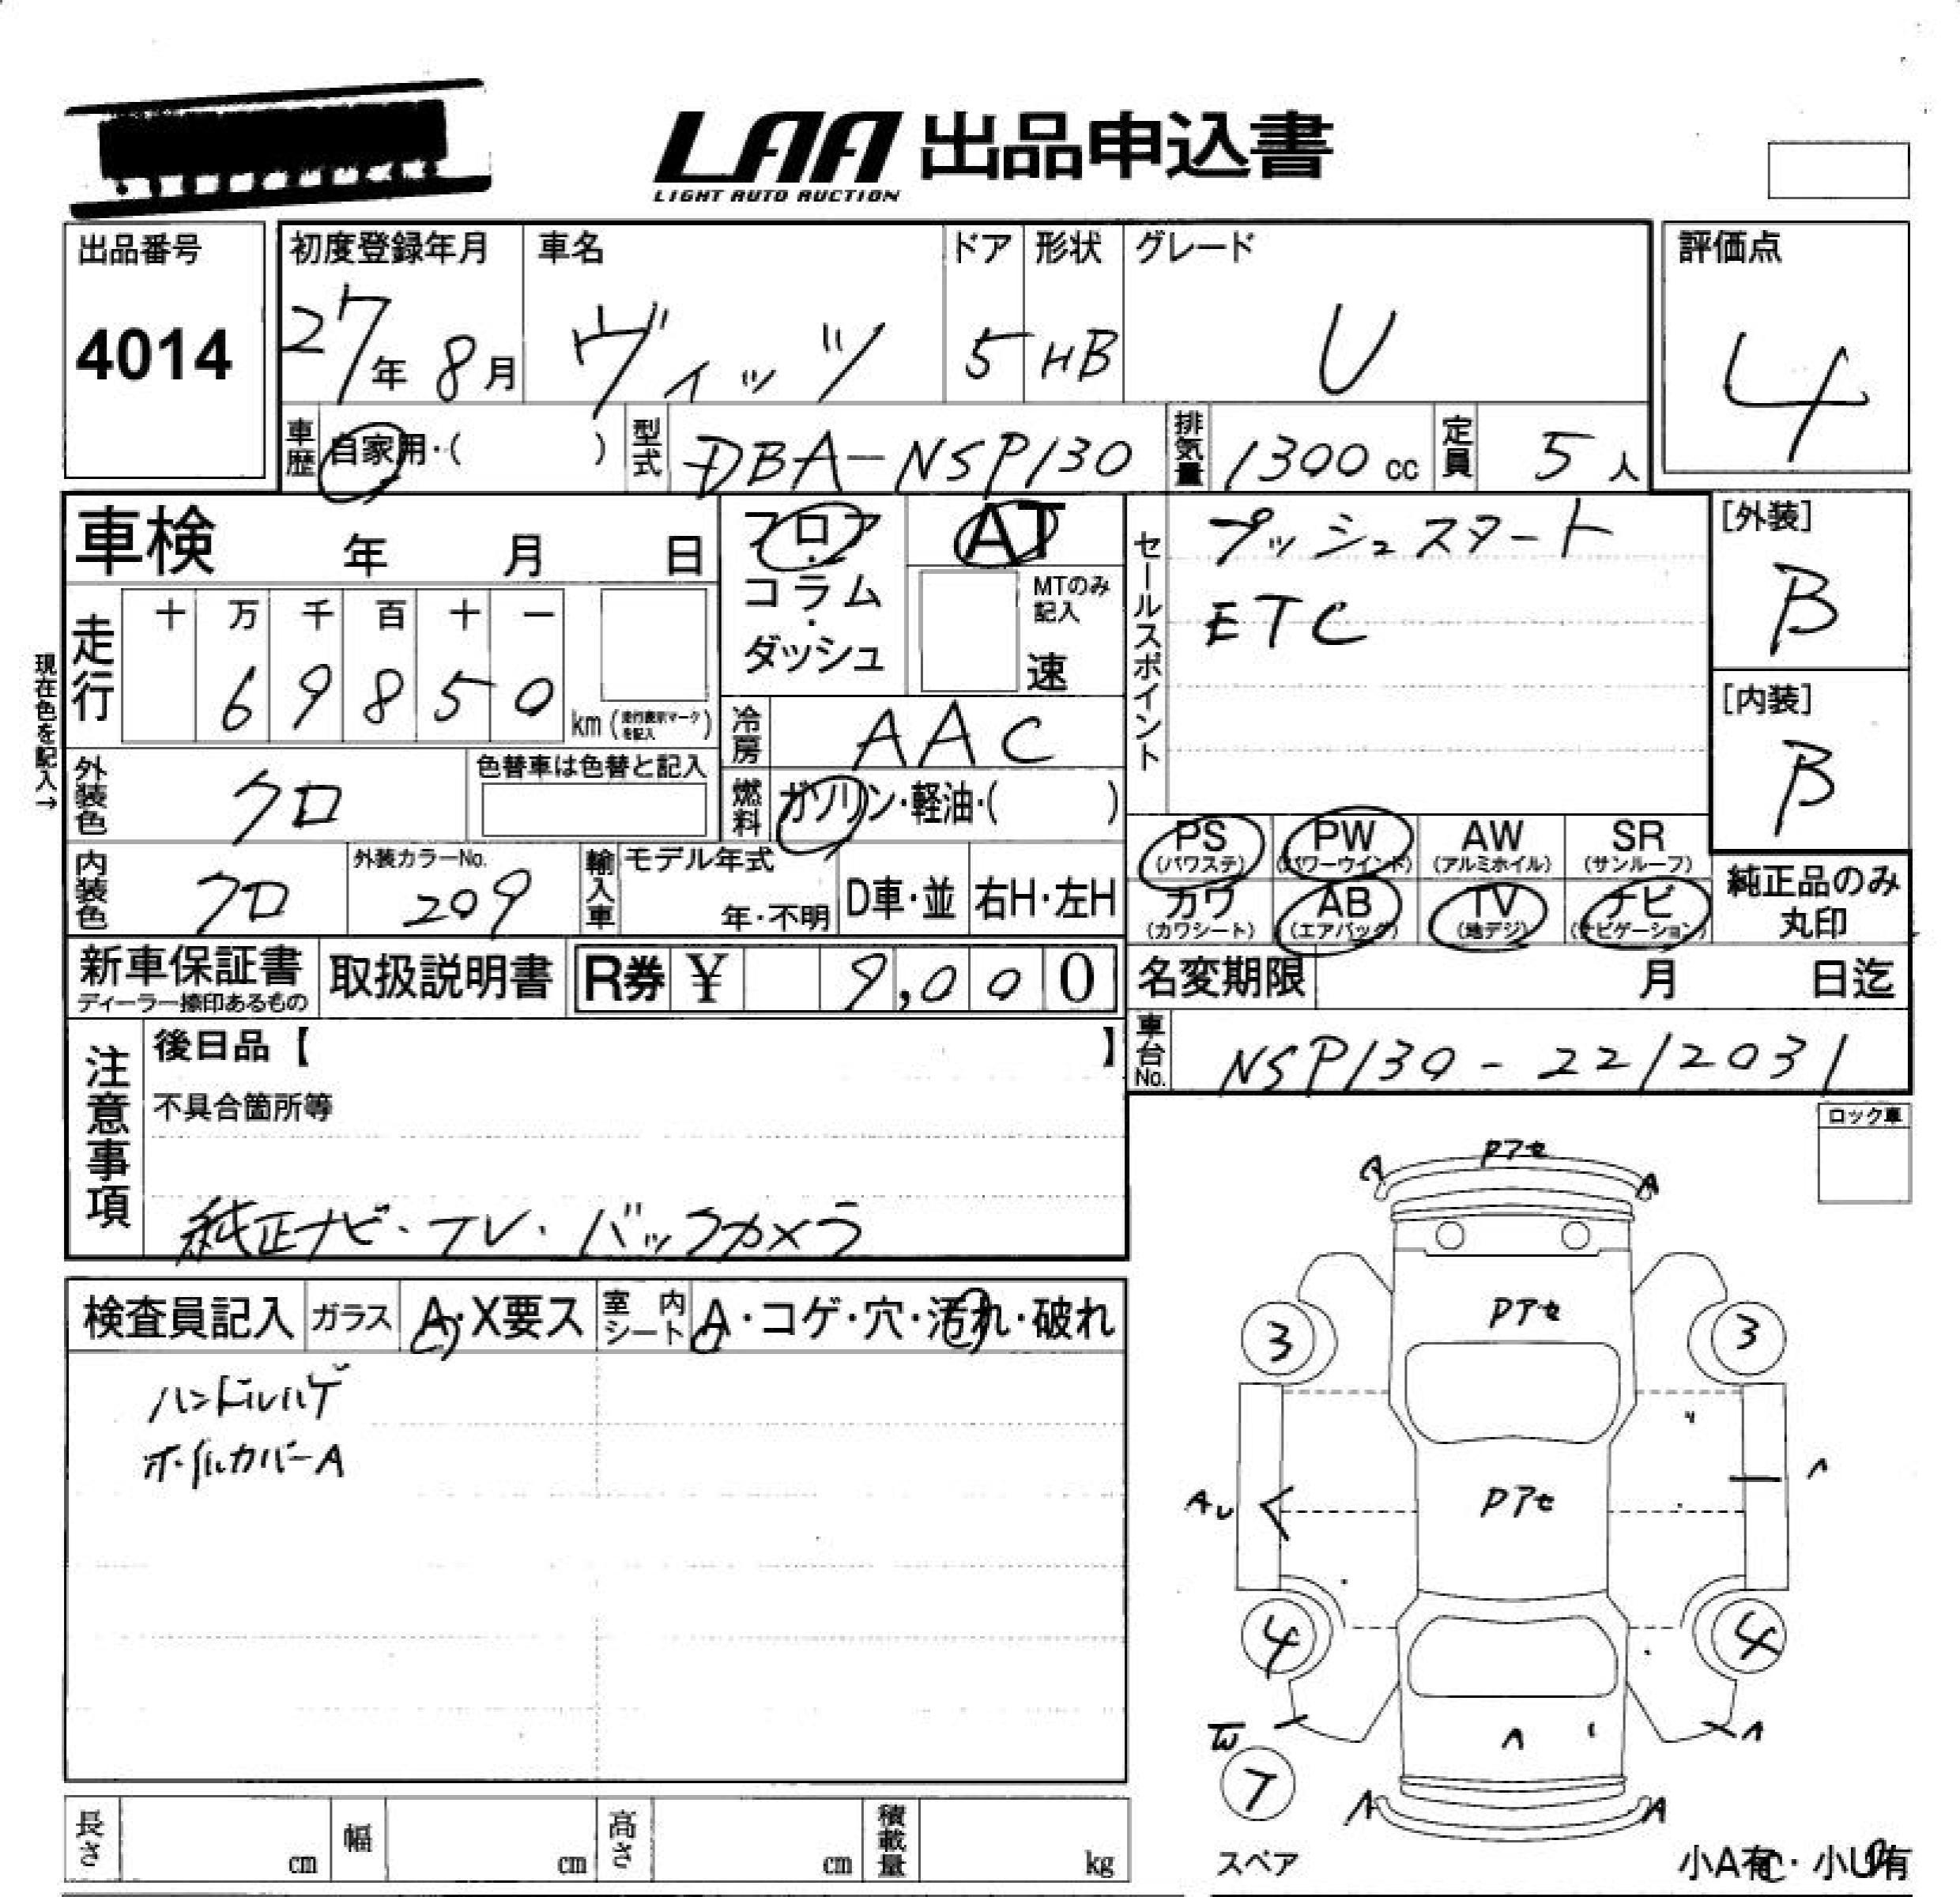 LAA 出品申込書
LIGHT AUTO AUCTION
出品番号 4014
初度登録年月 27年 8月
車名 ヴィッツ
ドア 5
形状 HB
グレード U
評価点 4
車歴 自家用・( )
型式 DBA-NSP130
排気量 1300 cc
定員 5 人
車検 年 月 日
フロア・コラム・ダッシュ
AT
MTのみ記入
速
セールスポイント
プッシュスタート
ETC
[外装] B
[内装] B
現在色を記入→
走行 十 万 千 百 十 一
6 9 8 5 0 km (走行表示マークを記入)
冷房 AAC
外装色 クロ
色替車は色替と記入
燃料 ガソリン・軽油・( )
内装色 クロ
外装カラーNo. 209
輸入車 モデル年式 年・不明
D車・並 右H・左H
PS (パワステ) PW (パワーウインド) AW (アルミホイル) SR (サンルーフ)
カワ (カワシート) AB (エアバック) TV (地デジ) ナビ (ナビゲーション)
純正品のみ丸印
新車保証書 ディーラー捺印あるもの
取扱説明書
R券 ¥ 9,000
名変期限 月 日迄
車台No. NSP130-2212031
注意事項
後日品【 】
不具合箇所等
純正ナビ・TV・バックカメラ
ロック車
検査員記入
ガラス A・X要ス
室内シート A・コゲ・穴・汚れ・破れ
ハンドルハゲ
ホイルカバーA
Pアセ
A
Pアセ
3 3
Pアセ
AU
4 4
W
7
スペア
A A
小A有・小U有
長さ cm
幅 cm
高さ cm
積載量 kg